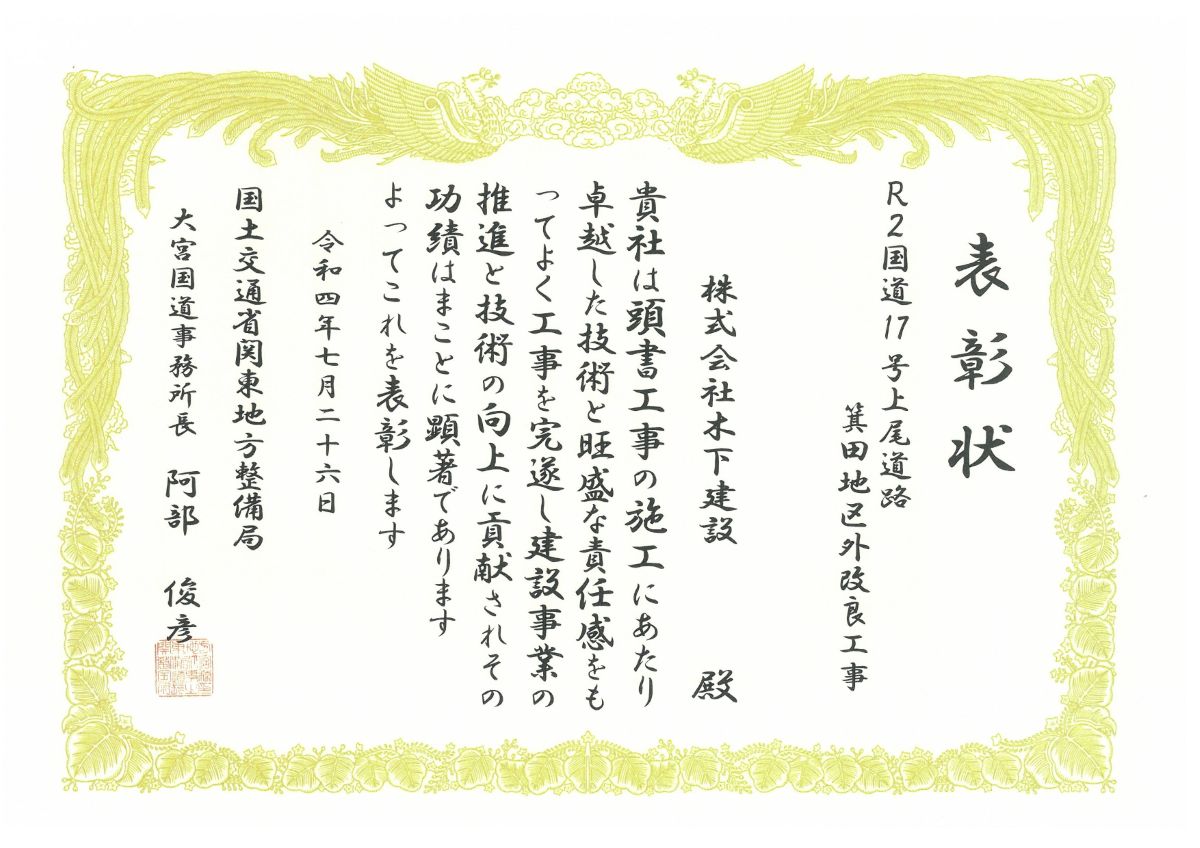 表彰状
R2国道17号上尾道路
箕田地区外改良工事
株式会社木下建設　殿
貴社は頭書工事の施工にあたり
卓越した技術と旺盛な責任感をも
ってよく工事を完遂し建設事業の
推進と技術の向上に貢献されその
功績はまことに顕著であります
よってこれを表彰します
令和四年七月二十六日
国土交通省関東地方整備局
大宮国道事務所長　阿部　俊彦